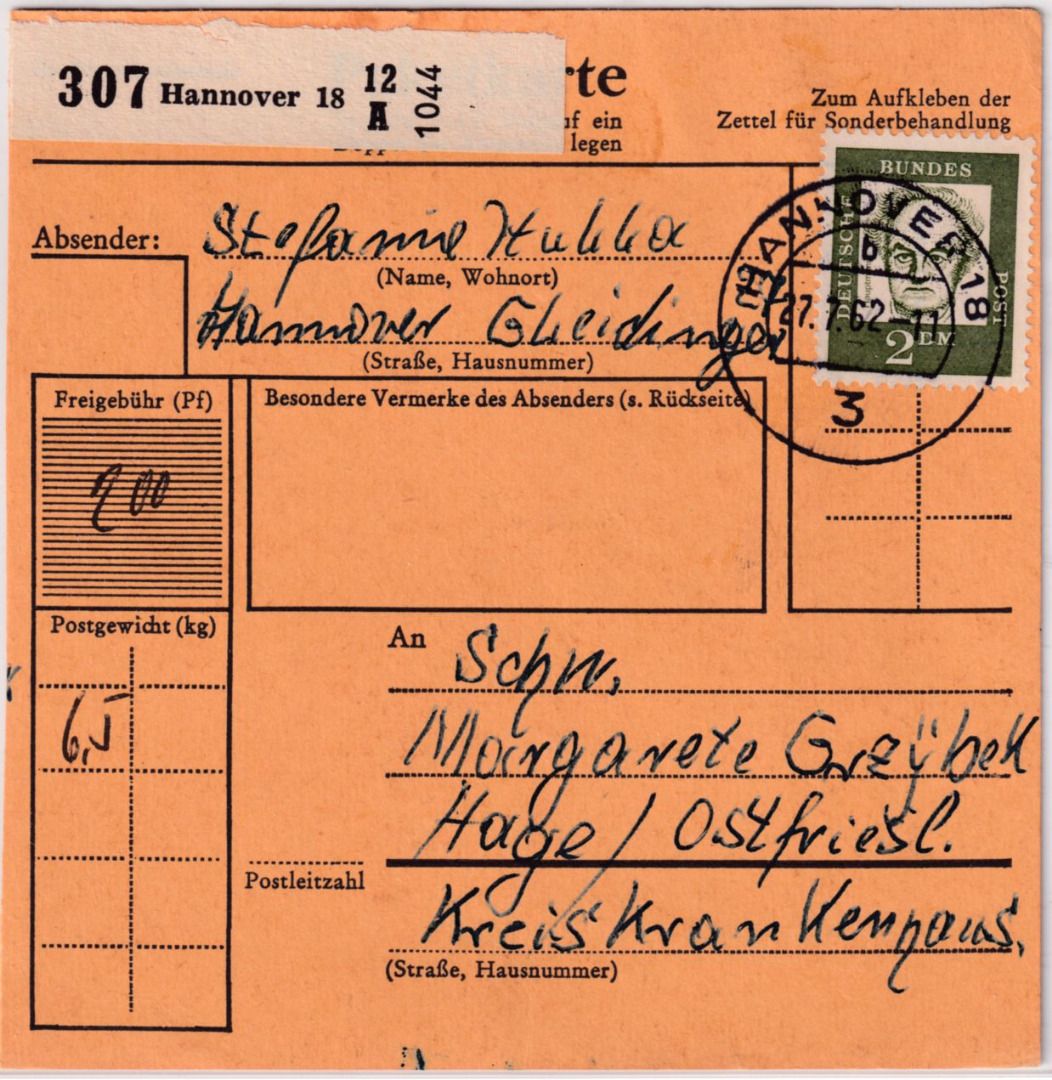 307 Hannover 18 12 A 1044
rte
uf ein
legen
Zum Aufkleben der
Zettel für Sonderbehandlung
BUNDES
DEUTSCHE
POST
2 DM
HANNOVER 18
b
27.7.62-11
3
Absender: Stefanie
(Name, Wohnort)
Hannover Gleidinger
(Straße, Hausnummer)
Freigebühr (Pf)
Besondere Vermerke des Absenders (s. Rückseite)
200
Postgewicht (kg)
6,5
An Schw.
Margarete Grzÿbek
Hage / Ostfriesl.
Postleitzahl
Kreiskrankenhaus.
(Straße, Hausnummer)